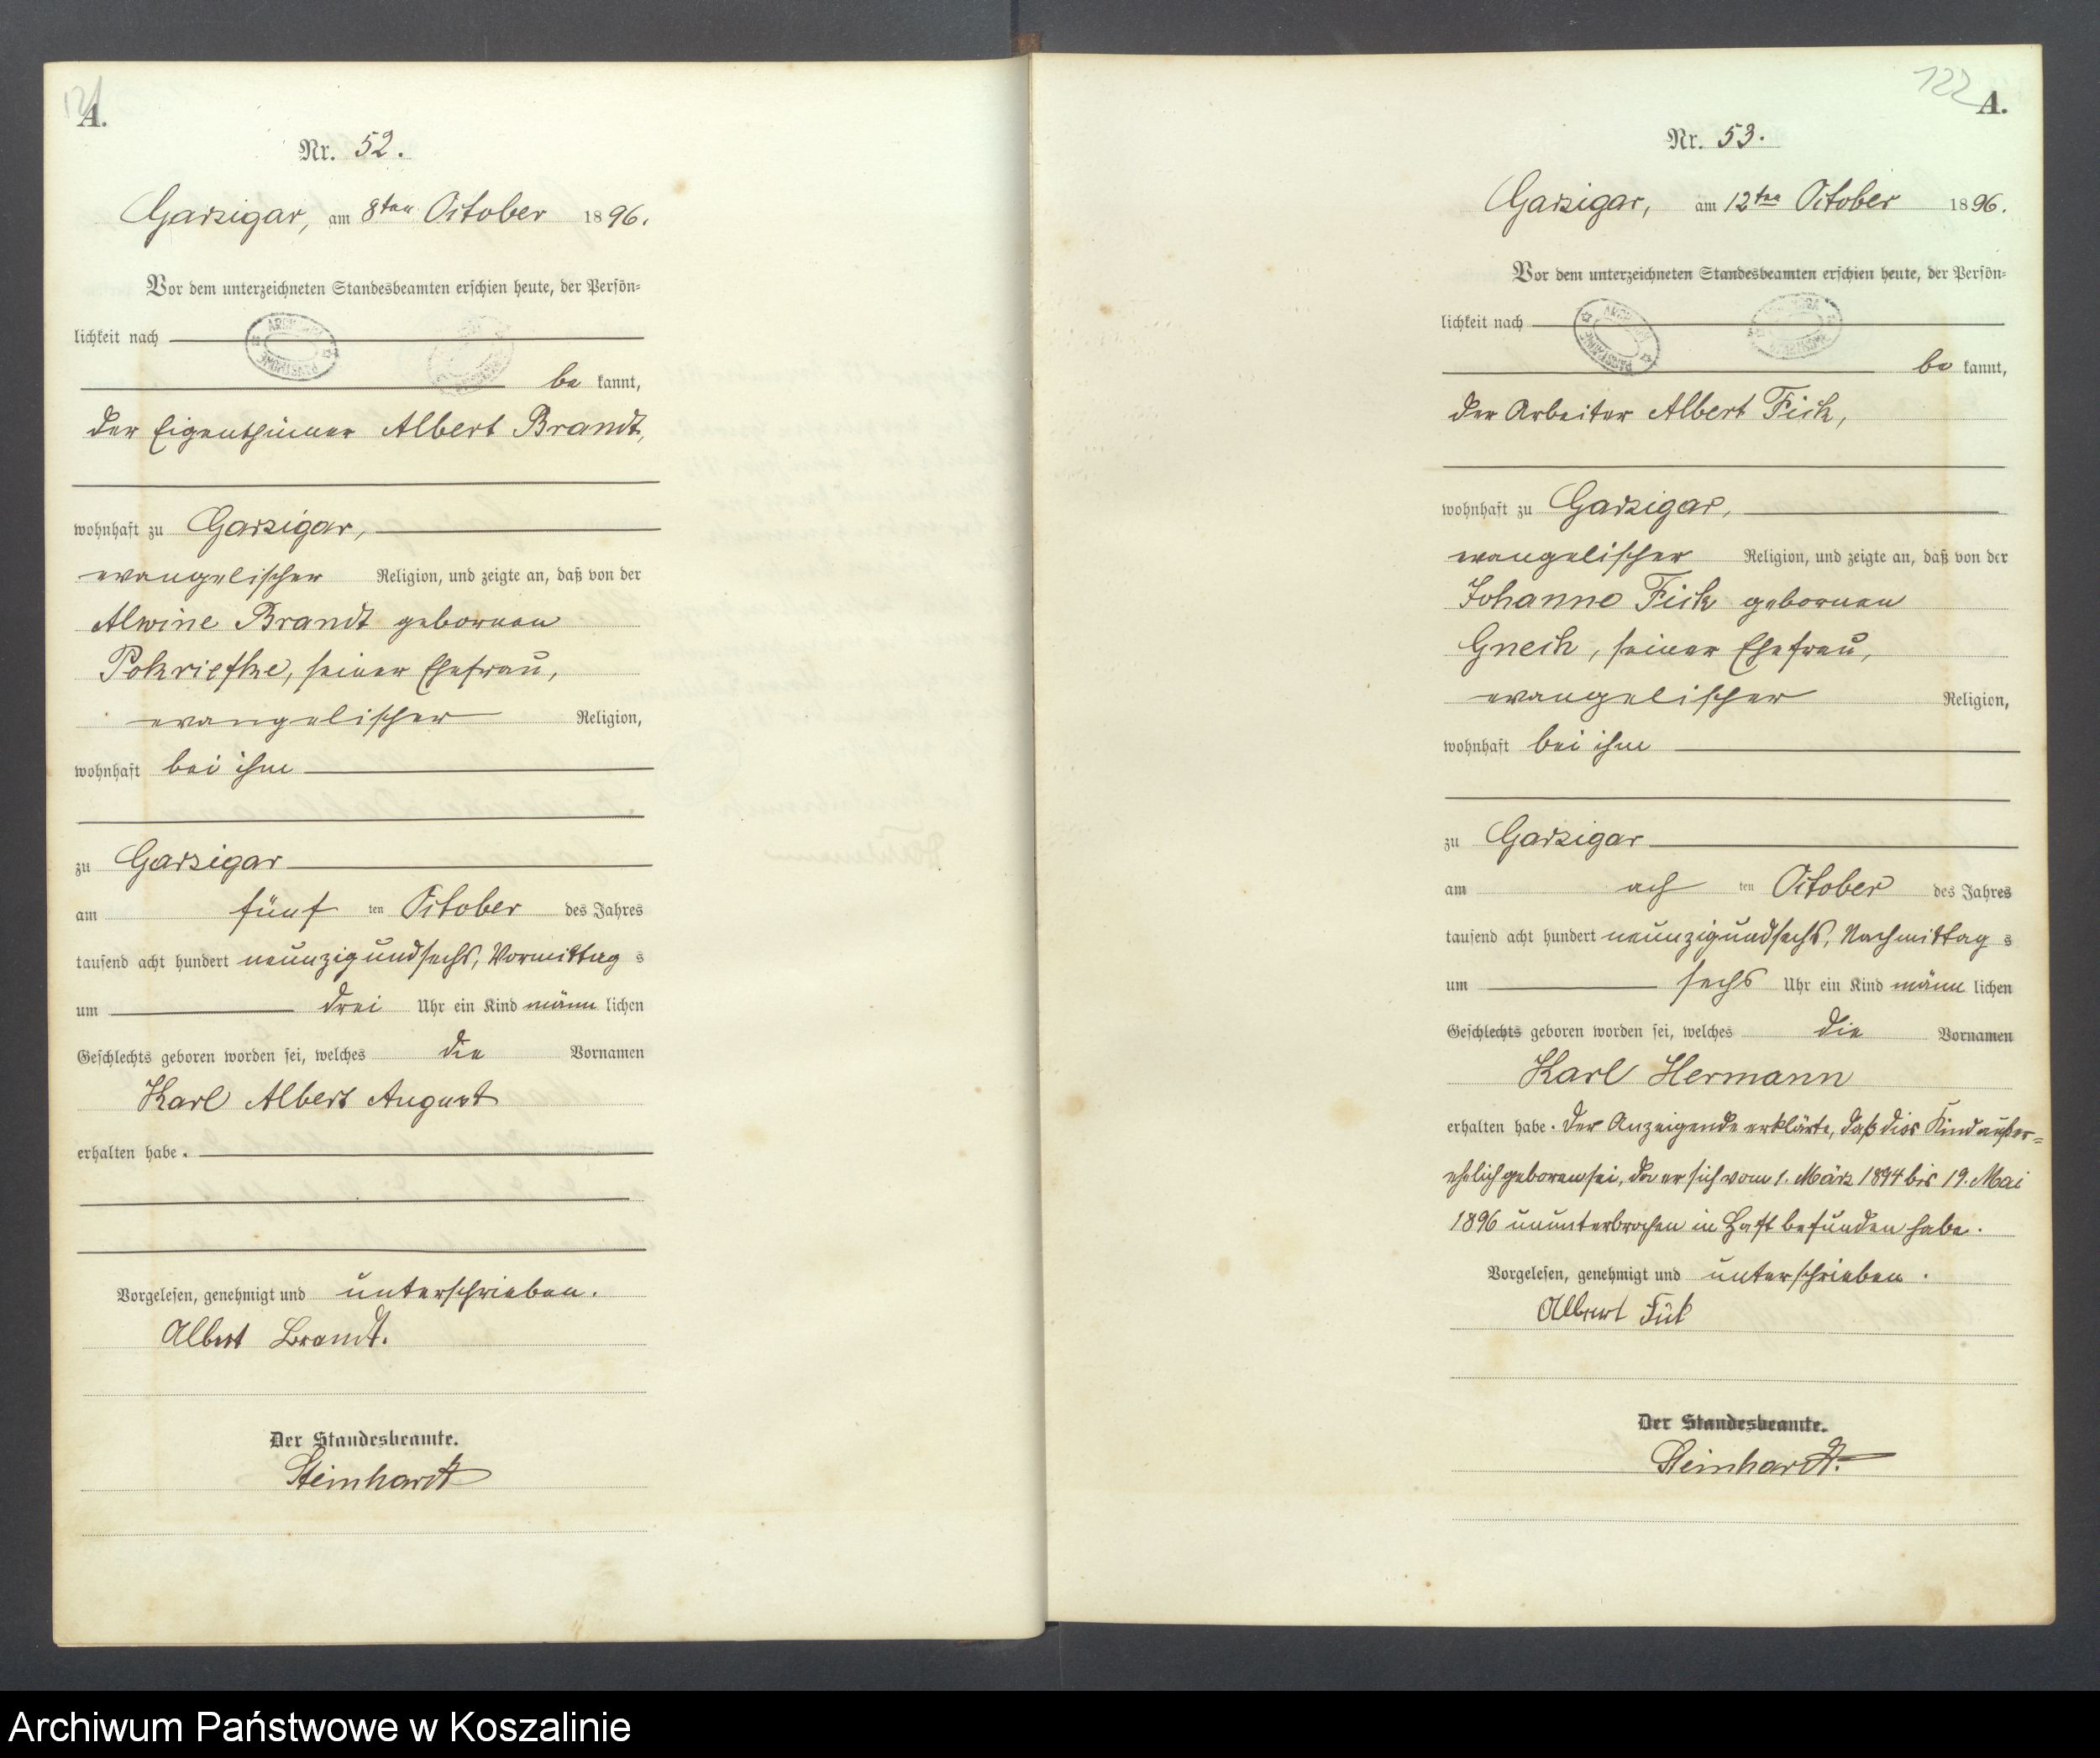 121
A.
Nr. 52.
Garzigar, am 8ten October 1896.
Vor dem unterzeichneten Standesbeamten erschien heute, der Persön-
lichkeit nach
be kannt,
der Eigenthümer Albert Brandt,
wohnhaft zu Garzigar,
evangelischer Religion, und zeigte an, daß von der
Alwine Brandt gebornen
Pokriefke, seiner Ehefrau,
evangelischer Religion,
wohnhaft bei ihm
zu Garzigar
am fünf ten October des Jahres
tausend acht hundert neunzigundsechs, Vormittag s
um drei Uhr ein Kind männ lichen
Geschlechts geboren worden sei, welches die Vornamen
Karl Albert August
erhalten habe.
Vorgelesen, genehmigt und unterschrieben.
Albert Brandt.
Der Standesbeamte.
Steinhardt
122
A.
Nr. 53.
Garzigar, am 12ten October 1896.
Vor dem unterzeichneten Standesbeamten erschien heute, der Persön-
lichkeit nach
be kannt,
der Arbeiter Albert Fick,
wohnhaft zu Garzigar,
evangelischer Religion, und zeigte an, daß von der
Johanne Fick gebornen
Gnech, seiner Ehefrau,
evangelischer Religion,
wohnhaft bei ihm
zu Garzigar
am ach ten October des Jahres
tausend acht hundert neunzigundsechs, Nachmittag s
um sechs Uhr ein Kind männ lichen
Geschlechts geboren worden sei, welches die Vornamen
Karl Hermann
erhalten habe. Der Anzeigende erklärte, daß dies Kind außer-
ehelich geboren sei, da er sich vom 1. März 1894 bis 19. Mai
1896 ununterbrochen in Haft befunden habe.
Vorgelesen, genehmigt und unterschrieben.
Albert Fick
Der Standesbeamte.
Steinhardt.
Archiwum Państwowe w Koszalinie